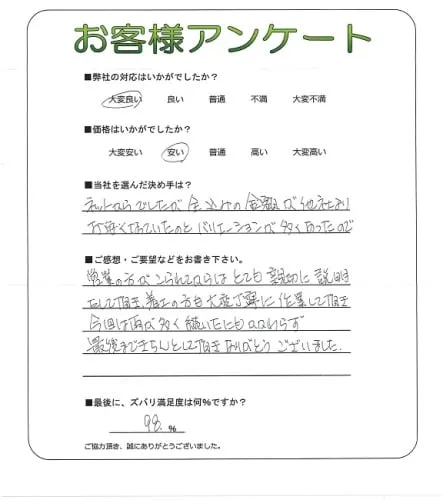 お客様アンケート
■弊社の対応はいかがでしたか？
大変良い 良い 普通 不満 大変不満
■価格はいかがでしたか？
大変安い 安い 普通 高い 大変高い
■当社を選んだ決め手は？
ネットからでしたが 全込みの金額が他社より
お安くなっていたのと バリエーションが多くあったので
■ご感想・ご要望などをお書き下さい。
営業の方がこられてからは とても親切に説明
して頂き、着工の方も大変丁寧に作業して頂き
今回は雨が多く続いたにもかかわらず
最後まできちんとして頂き ありがとうございました。
■最後に、ズバリ満足度は何%ですか？
98. %
ご協力頂き、誠にありがとうございました。